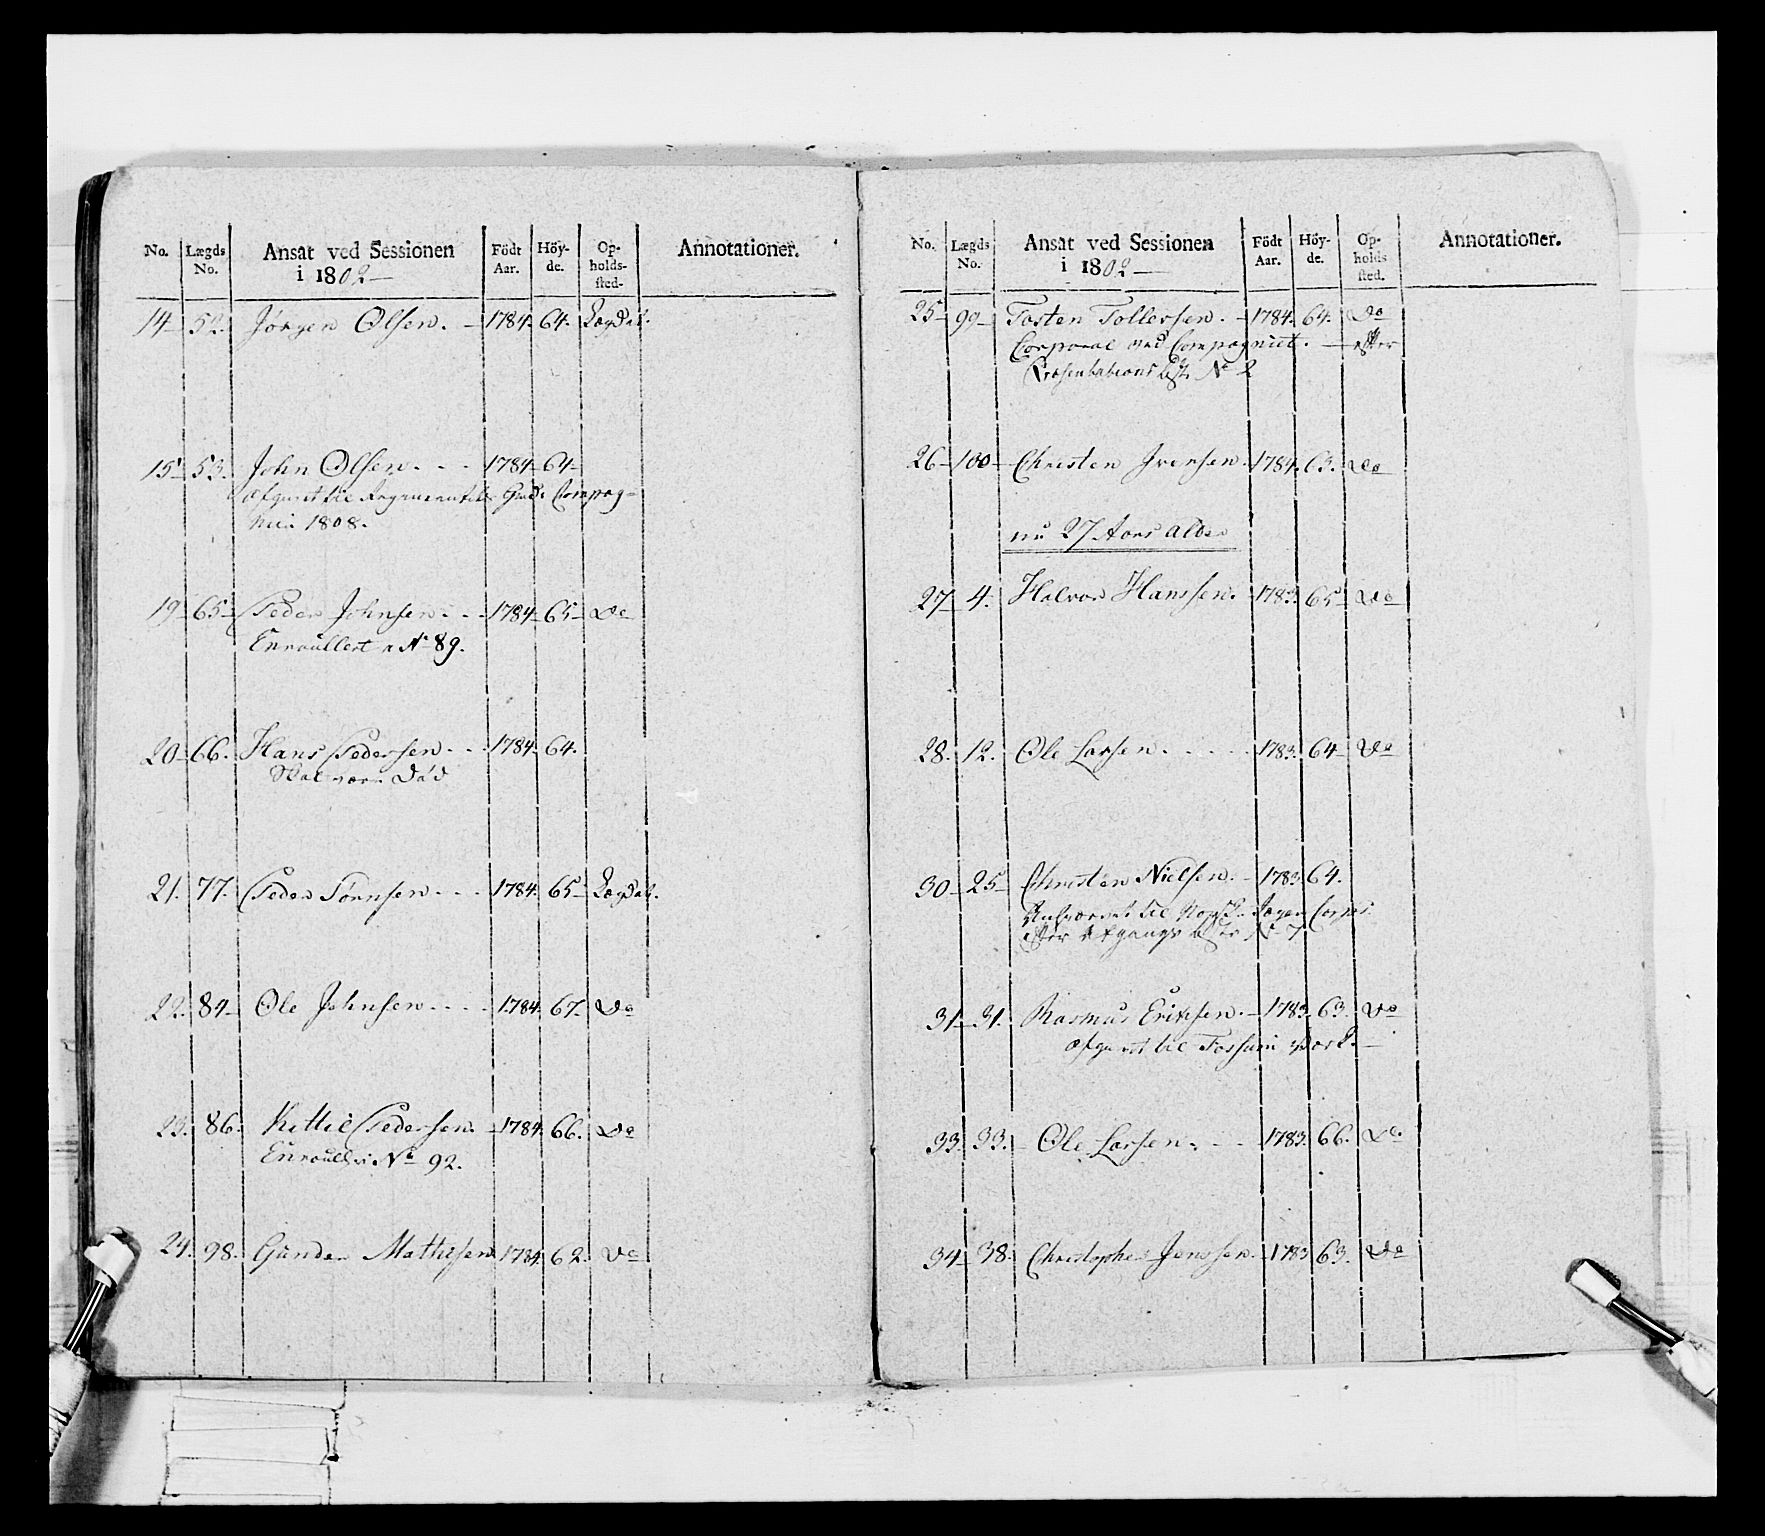 No. Lægds No. Ansat ved Sessionen i 1802 Födt Aar. Höy-de. Op-holds-sted. Annotationer.
14 52. Jörgen Olsen. 1784. 64. Logdal.
15 53. John Olsen 1784 64
afgaaet til Regimentets Gued. Compag-
nie 1808.
19 65 Peder Johnsen 1784 65 Do
Enroullert No 89.
20 66. Hans Pedersen 1784. 64.
Skal være Död
21. 77. Peder Törrisen 1784. 65 Logdal.
22. 84 Ole Johnsen 1784. 67. Do
23. 86. Kittil Pedersen. 1784. 66. Do
Enroull: No 92.
24. 98. Gunder Mathisen 1784. 62. Do
No. Lægds No. Ansat ved Sessionen i 1802 Födt Aar. Höy-de. Op-holds sted. Annotationer.
25 99 Tosten Tollersen. 1784. 64. Do
Corporal ved Compagniet. efter
Præsentations List. No 2
26 100 Christen Iversen. 1784. 63. Do
nu 27 Aars alder
27 4. Halvor Hanssen. 1783. 65 Do
28. 12. Ole Larsen 1783. 64 Do
30 25 Christen Nielsen. 1783. 64.
til Norske Jæger Corps
efter Afgangs Liste No 7
31 31. Rasmus Erichsen. 1783. 63. Do
afgaaet til Fossum Værk.
33. 33. Ole Larsen. 1783. 66. Do
34 38. Christopher Jenssen. 1783 63. Do